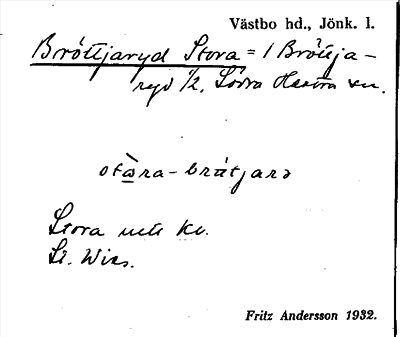 Västbo hd., Jönk. l.
Bröttjaryd Stora = 1 Bröttja-
ryd 1/2, Södra Hestra sn.
stàra-brátjarə
Stora utt. kv.
St. Wies.
Fritz Andersson 1932.